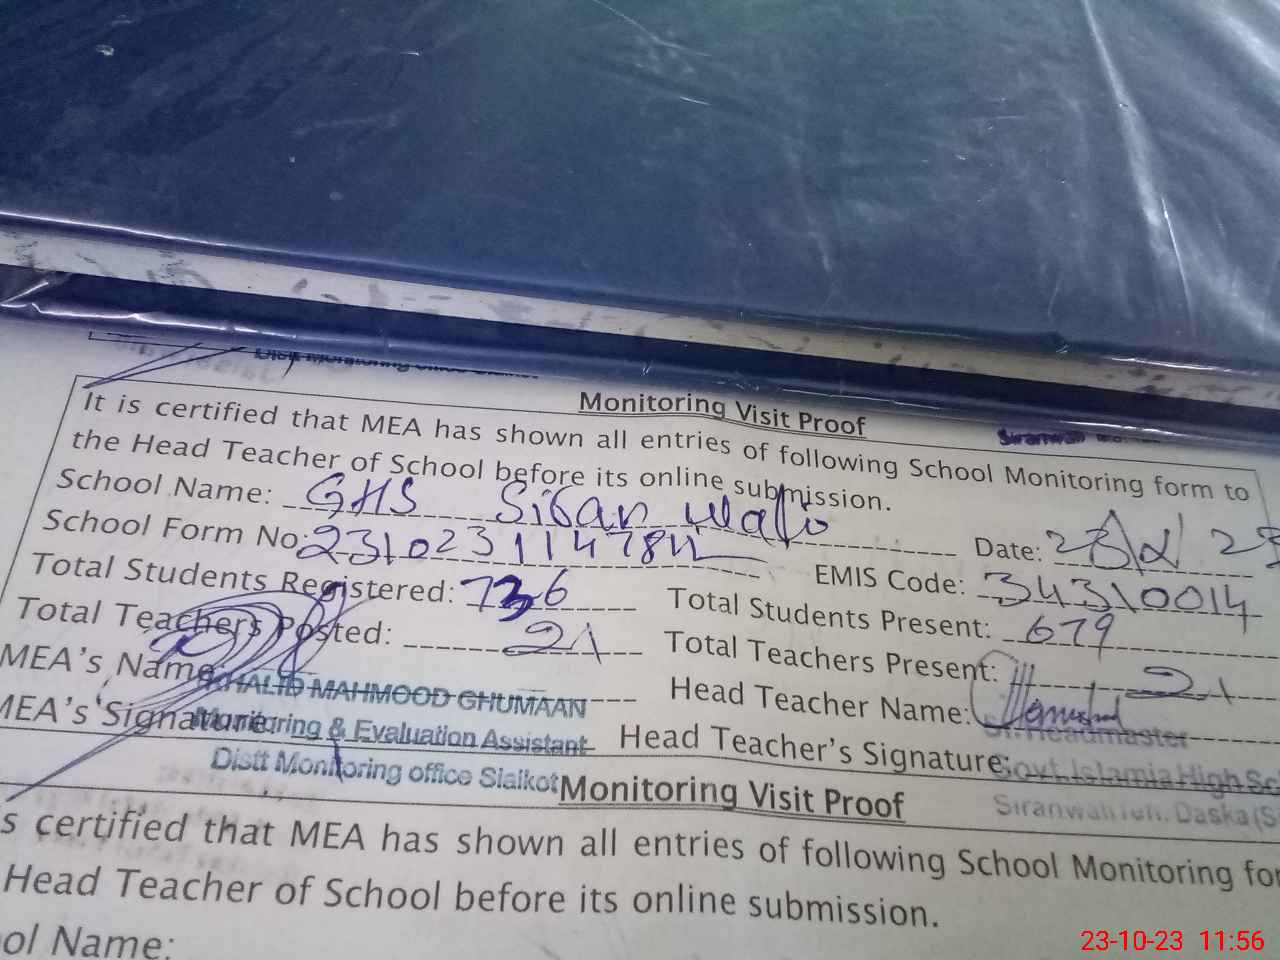 Distt Monitoring office Sialkot
Monitoring Visit Proof
It is certified that MEA has shown all entries of following School Monitoring form to
the Head Teacher of School before its online submission.
School Name: GHS Siran wali
Date:
School Form No:
EMIS Code: 34310014
Total Students Registered: 736
Total Students Present: 679
Total Teachers Posted: 21
Total Teachers Present: 21
MEA's Name: KHALID MAHMOOD GHUMAAN
Head Teacher Name:
Sr. Headmaster
MEA's Signature:
Monitoring & Evaluation Assistant
Head Teacher's Signature:
Govt. Islamia High Sc
Distt Monitoring office Sialkot
Siranwali Teh. Daska (S
Monitoring Visit Proof
s certified that MEA has shown all entries of following School Monitoring for
Head Teacher of School before its online submission.
ool Name:
23-10-23 11:56